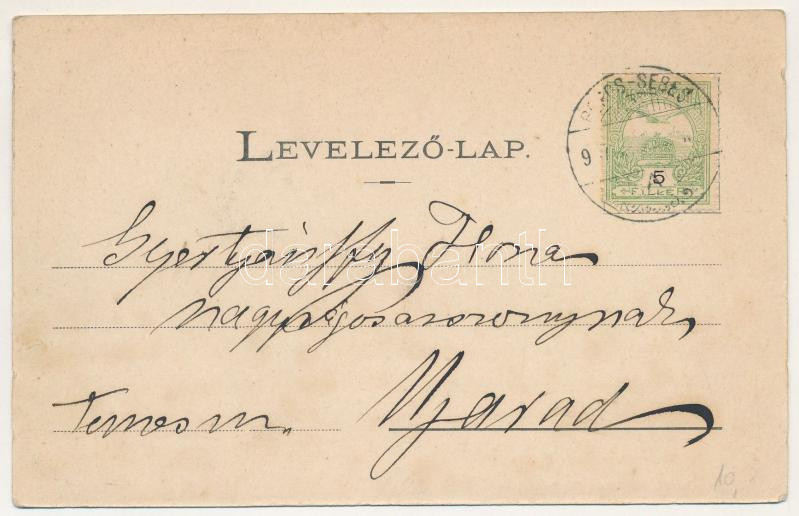 LEVELEZŐ-LAP.
5
FILLÉR
Gyertyánffy Ilona
nagyságos asszonynak
Temesm. Ujarad
darabanth
10